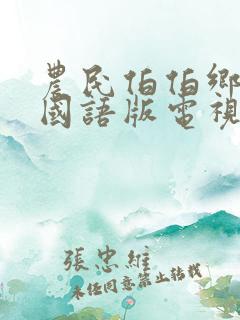 農民伯伯鄉
國語版電視
張忠維
未經同意禁止轉載